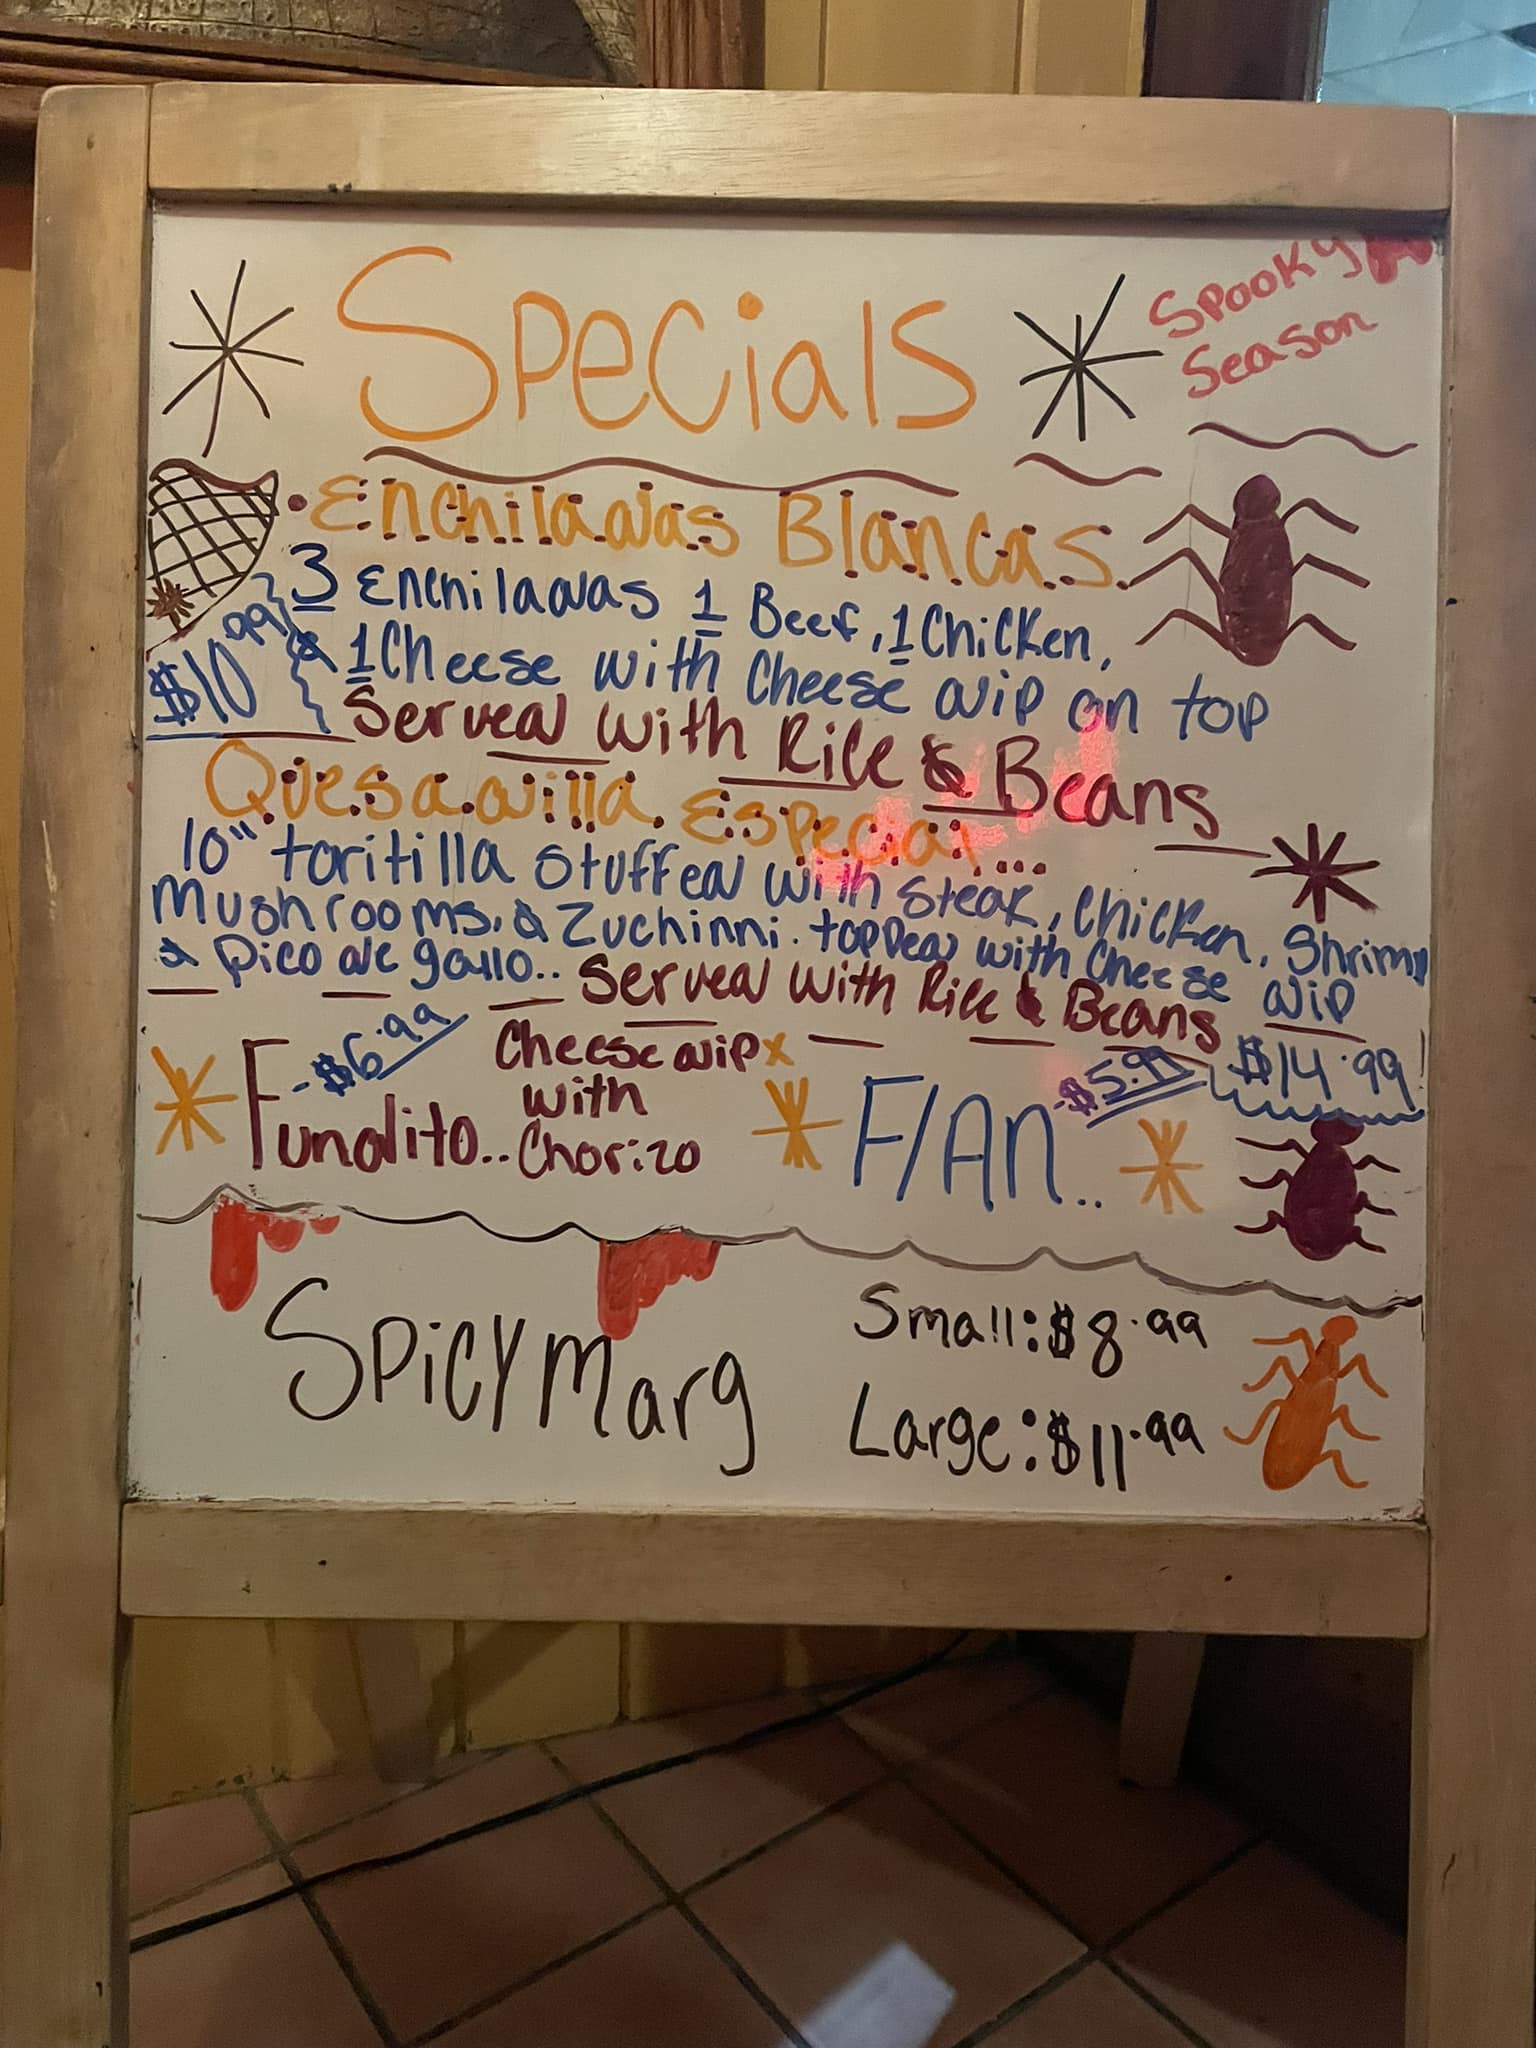 Specials
Spooky
Season
• Enchiladas Blancas
3 Enchiladas 1 Beef, 1 Chicken,
& 1 Cheese with Cheese dip on top
$10.99
Served with Rice & Beans
Quesadilla Especial...
10" toritilla stuffed with steak, Chicken, Shrimp
Mushrooms, & Zuchinni. topped with Cheese dip
& Pico de gallo..
Served with Rice & Beans
$14.99
Fundito..
-$6.99
Cheese dip
with
Chorizo
FlAn..
-$5.99
Spicy marg
Small: $8.99
Large: $11.99